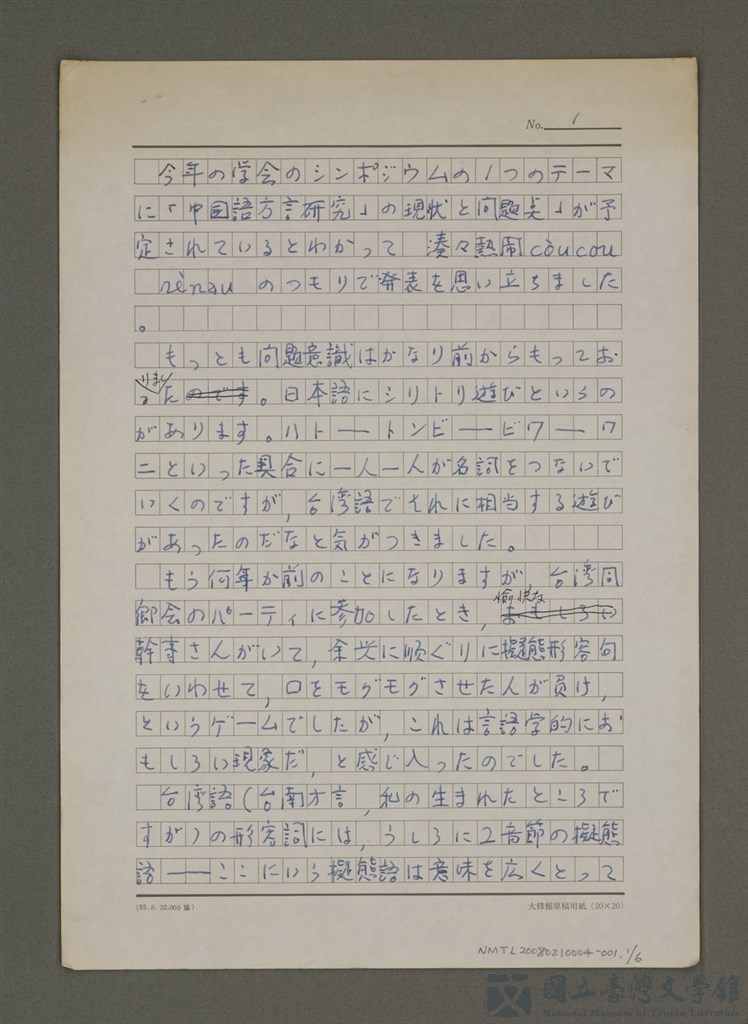 No. 1
今年の学会のシンポジウムの1つのテーマ
に「中国語方言研究」の現状と問題点」が予
定されているとわかって 湊々熱鬧còucou
rènau のつもりで発表を思い立ちました
。
もっとも問題意識はかなり前からもってお
りまし
った のです。日本語にシリトリ遊びというの
があります。ハト──トンビ──ビワ──ワ
ニといった具合に一人一人が名詞をつないで
いくのですが,台湾語でそれに相当する遊び
があったのだなと気がつきました。
もう何年か前のことになりますが,台湾同
愉快な
郷会のパーティに参加したとき,おもしろい
幹事さんがいて,余興に順ぐりに擬態形容句
をいわせて,口をモグモグさせた人が負け,
というゲームでしたが,これは言語学的にお
もしろい現象だ,と感じ入ったのでした。
台湾語(台南方言,私の生まれたところで
すが)の形容詞には,うしろに2音節の擬態
語──ここにいう擬態語は意味を広くとって
(55.8.32,000 協)
大修館原稿用紙(20×20)
NMTL20080210004-001. 1/6
國立臺灣文學館
National Museum of Taiwan Literature